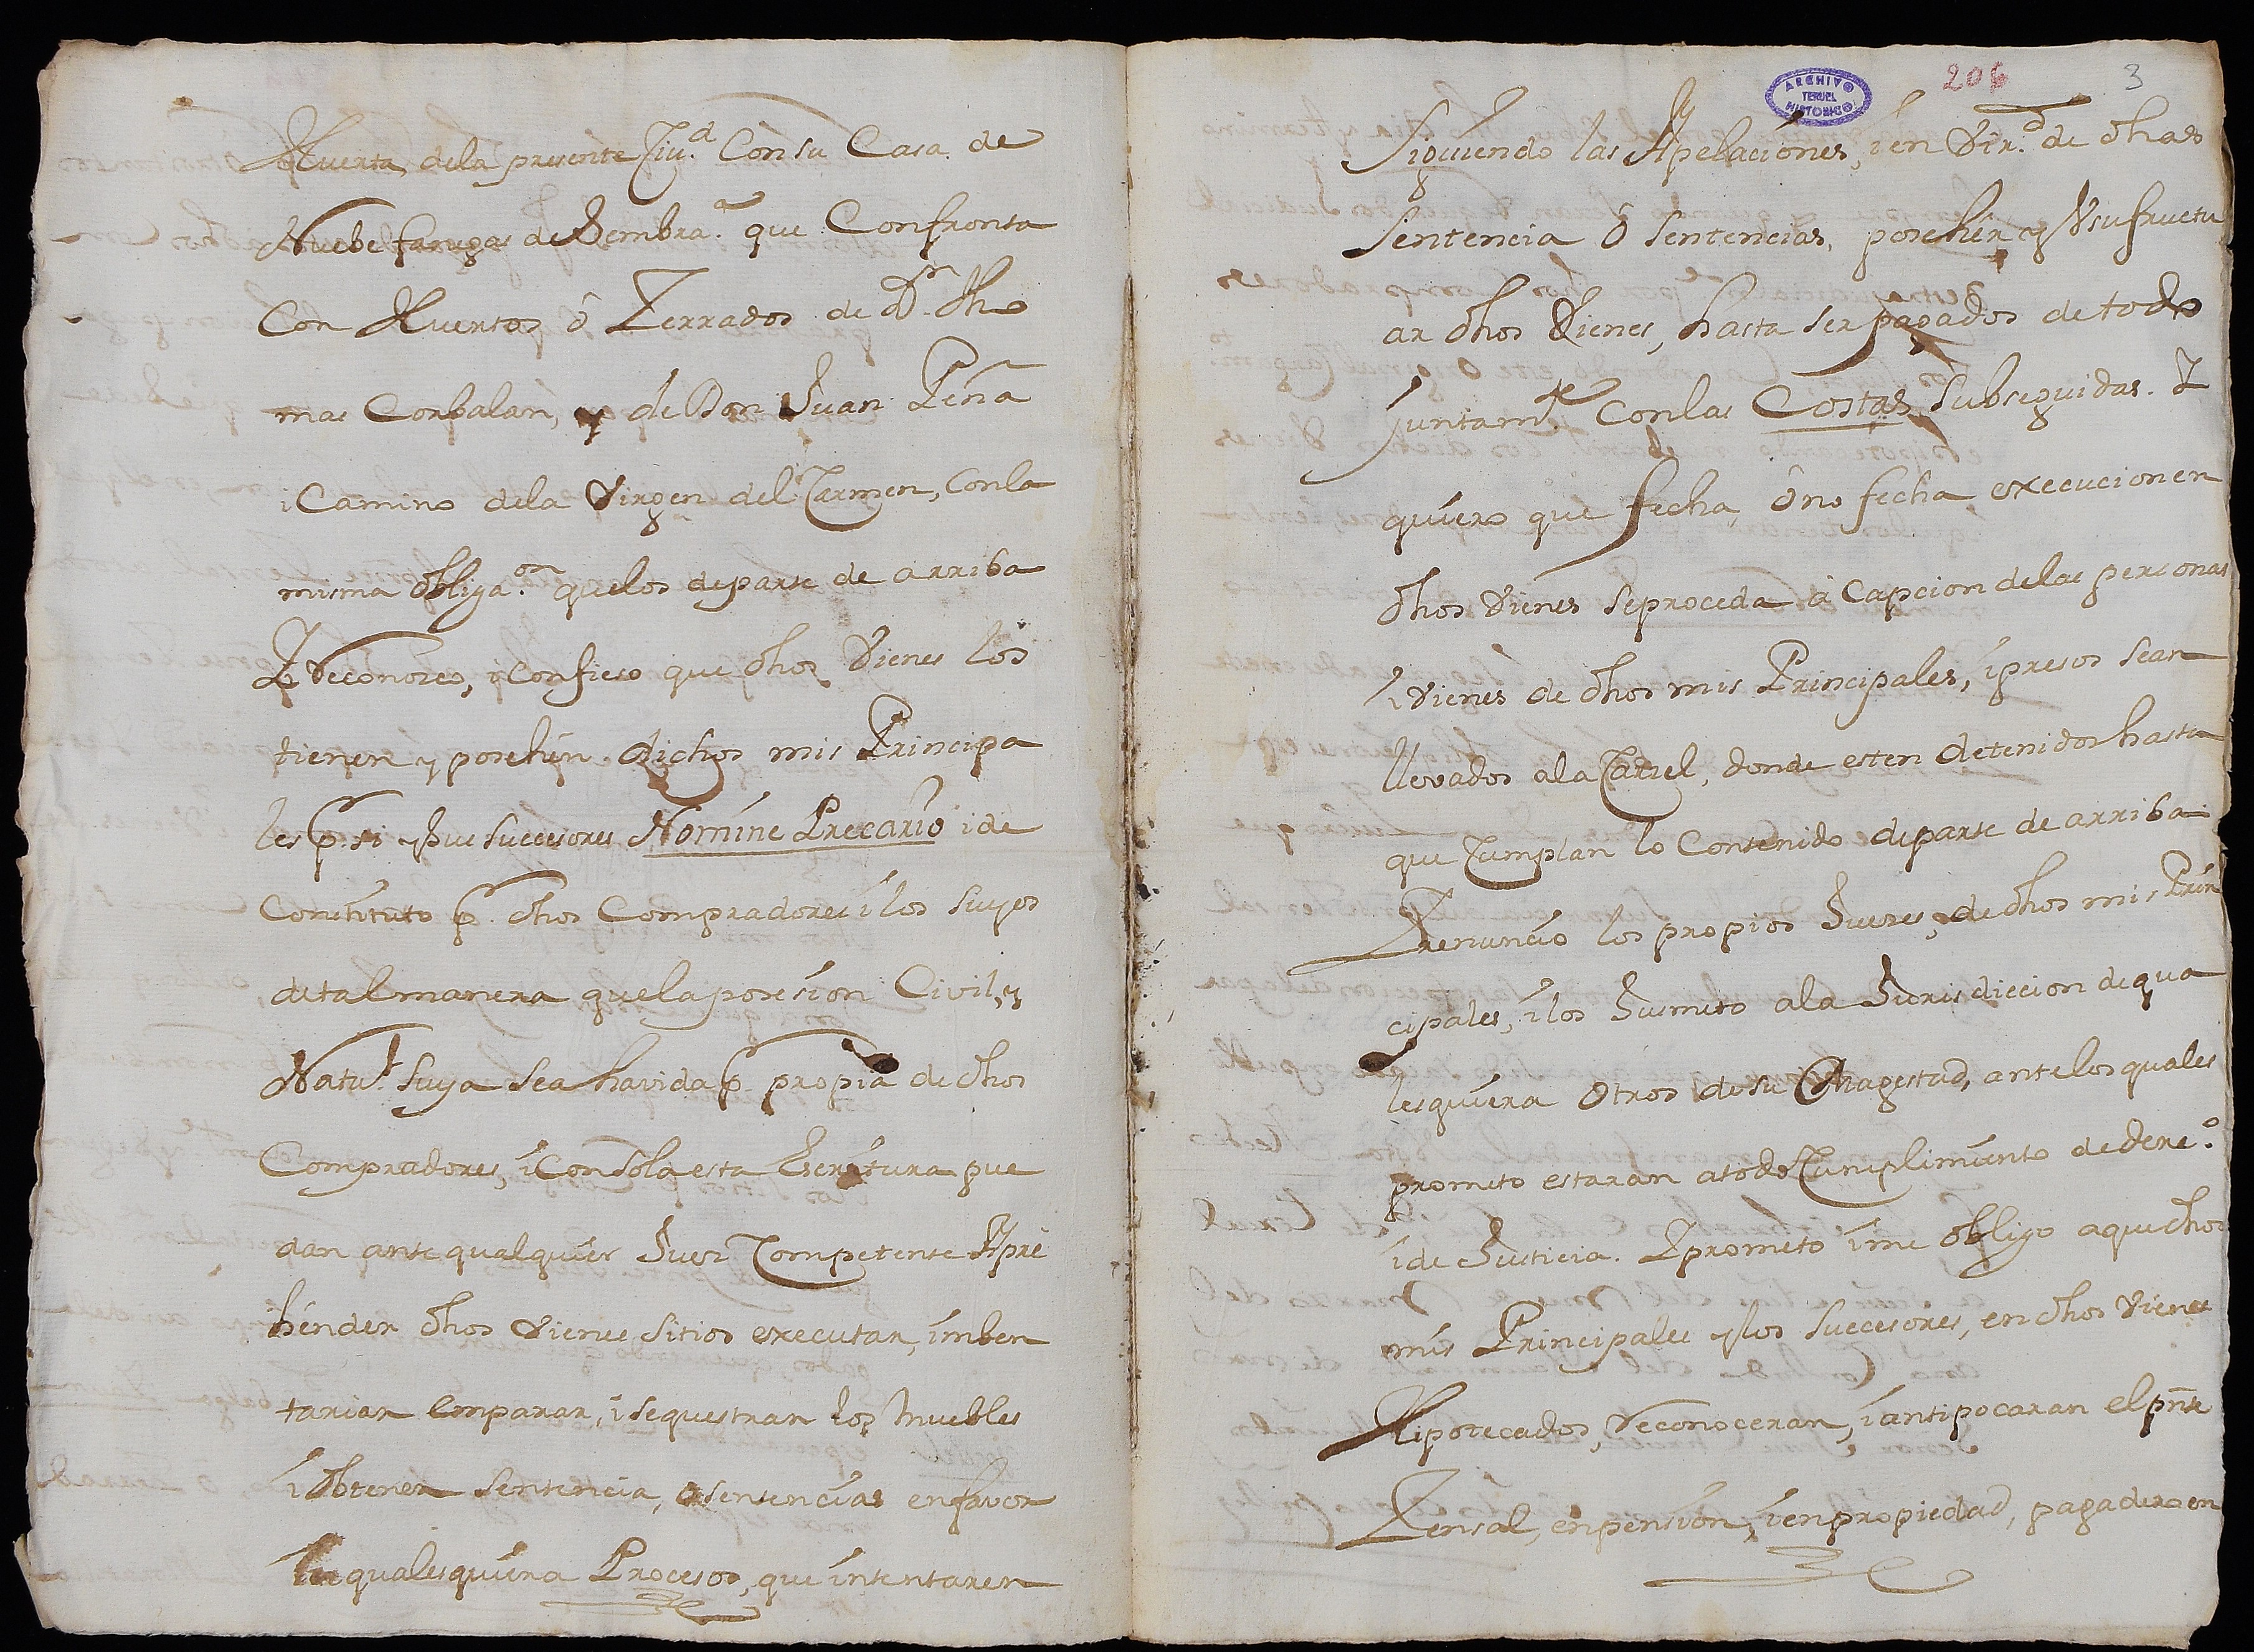 Huerta dela presente Ciu.d Con su Casa de
Nuebe fanegas de Sembra.a que Confronta
Con Huertos ô Zerrados de Dn. Tho
mas Corbalan, y de Don Juan Peña
i Camino dela Virgen del Carmen, Conla
misma Obliga.on quelos departe de arriba
Y Reconozco, i Confieso que dhos Vienes los
tienen y posehen dichos mis Principa
les p. si y sus succesores Nomine Precario i de
Constituto p. dhos Compradores i los suyos
detalmanera quela posesion Civil, y
Natu.l suya sea havida p. propia de dhos
Compradores, i Con sola esta Escritura pue
dan ante qualquier Juez Competente Apre
hender dhos Vienes sitios executar, imben
tariar emparar, i sequestrar los muebles
i Obtener sentencia, o sentencias en favor
en qualesquiera Procesos, que intentaren
ARCHIVO
TERUEL
HISTORICO
206
3
Siguiendo las Apelaciones, i en Vir.d de dhas
Sentencia ô sentencias, posehér y Usufructu
ar dhos Vienes, hasta ser pagados de todo
Juntam.te Conlas Costas Subseguidas. Y
quiero que fecha, ô no fecha execucion en
dhos Vienes se proceda à Capcion delas personas
i Vienes de dhos mis Principales, i presos sean
llevados ala Carzel, donde esten detenidos hasta
que Cumplan lo Contenido departe de arriba
Y renuncio los propios Juezes, de dhos mis Prin
cipales, i los Jusmeto ala Jurisdiccion de qua
lesquiera Otros de su Magestad, antelos quales
prometo estaran atodo Cumplimiento de dere.o
i de Justicia. Y prometo i me obligo aque dhos
mis Principales y los succesores, en dhos Vienes
Hipotecados, Reconoceran, i antipocaran el pnte
Zensal, en pension, i en propiedad, pagadero en